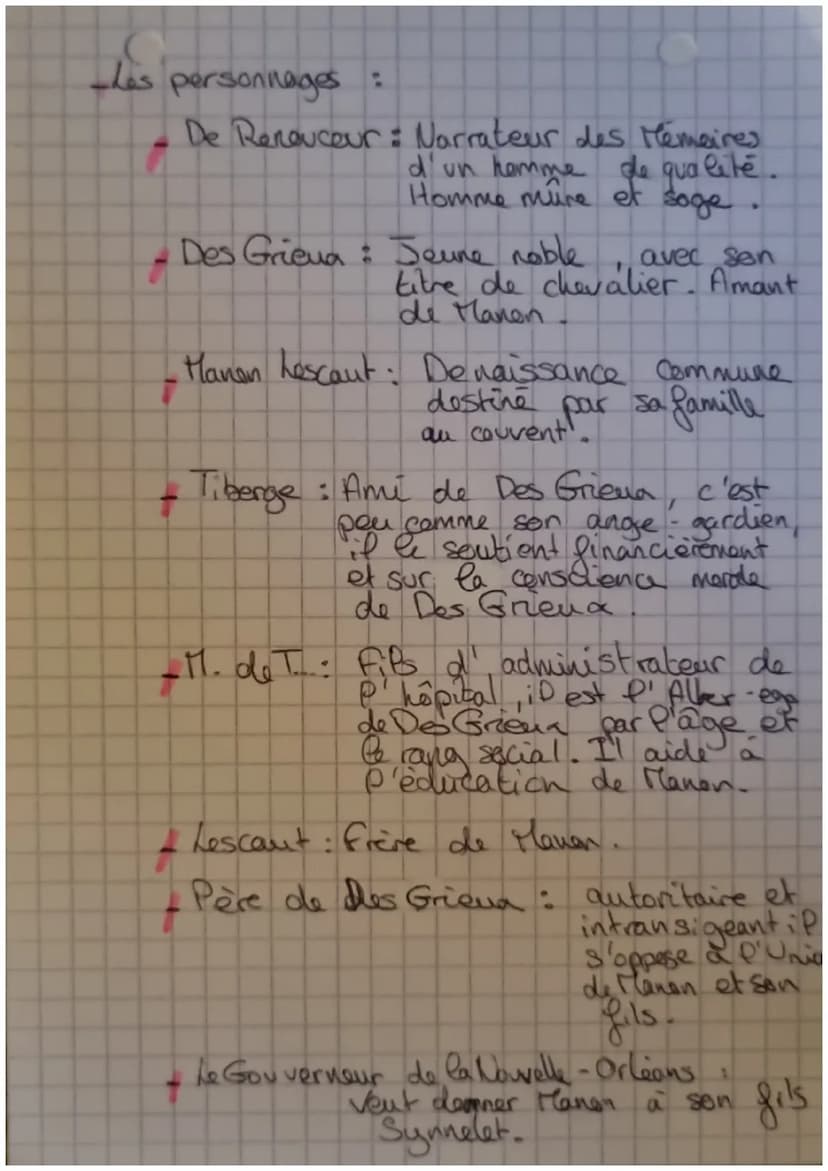 - Les personnages :
- De Renoucour : Narrateur des Mémoires
d'un homme de qualité.
Homme mûre et sage.
- Des Grieux : Jeune noble, avec son
titre de chevalier. Amant
de Manon.
- Manon Lescaut : De naissance commune
destiné par sa famille
au couvent.
- Tiberge : Ami de Des Grieux, c'est
peu comme son ange-gardien,
il le soutient financièrement
et sur la conscience morale
de Des Grieux.
- M. de T... : Fils d'administrateur de
l'hôpital, il est l'Alter-ego
de Des Grieux par l'âge et
le rang social. Il aide à
l'éducation de Manon.
- Lescaut : Frère de Manon.
- Père de Des Grieux : autoritaire et
intransigeant il
s'oppose à l'Unio
de Manon et son
fils.
- Le Gouverneur de la Nouvelle-Orléans :
veut donner Manon à son fils
Synnelet.